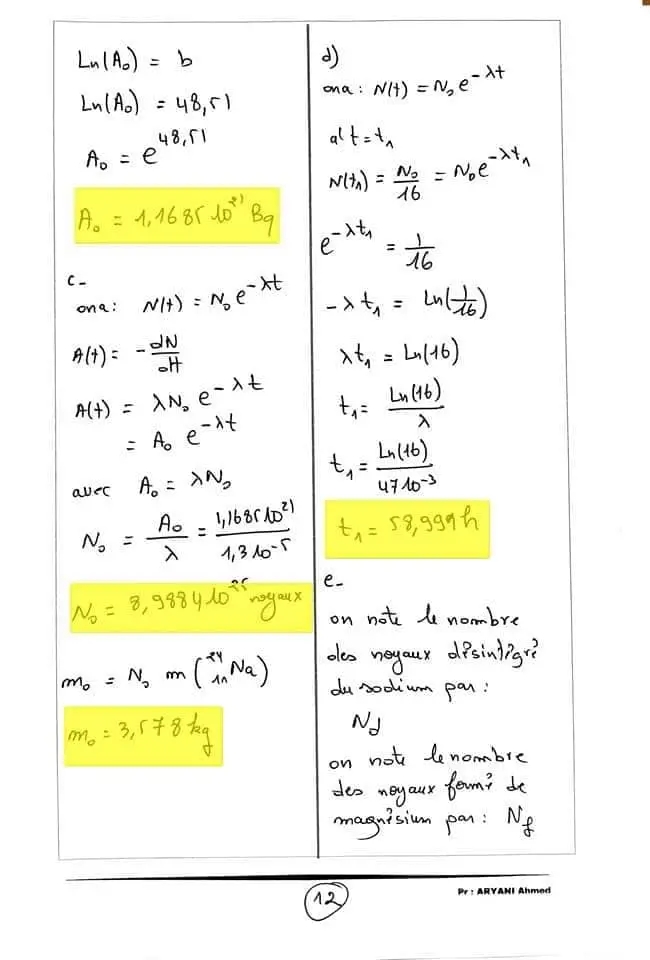 Ln(A₀) = b
Ln(A₀) = 48,51
A₀ = e^48,51
A₀ = 1,1685 10²¹ Bq
c-
ona : N(t) = N₀ e^-λt
A(t) = - dN/dt
A(t) = λN₀ e^-λt
= A₀ e^-λt
avec A₀ = λN₀
N₀ = A₀/λ = 1,1685 10²¹/1,3 10⁻⁵
N₀ = 8,9884 10²⁵ noyaux
m₀ = N₀ m(²⁴₁₁Na)
m₀ = 3,578 kg
d)
ona : N(t) = N₀ e^-λt
a t = t₁
N(t₁) = N₀/16 = N₀e^-λt₁
e^-λt₁ = 1/16
-λt₁ = Ln(1/16)
λt₁ = Ln(16)
t₁ = Ln(16)/λ
t₁ = Ln(16)/47 10⁻³
t₁ = 58,999 h
e-
on note le nombre
des noyaux désintégré
du sodium par :
N_d
on note le nombre
des noyaux formé de
magnésium par : N_f
12
Pr : ARYANI Ahmed